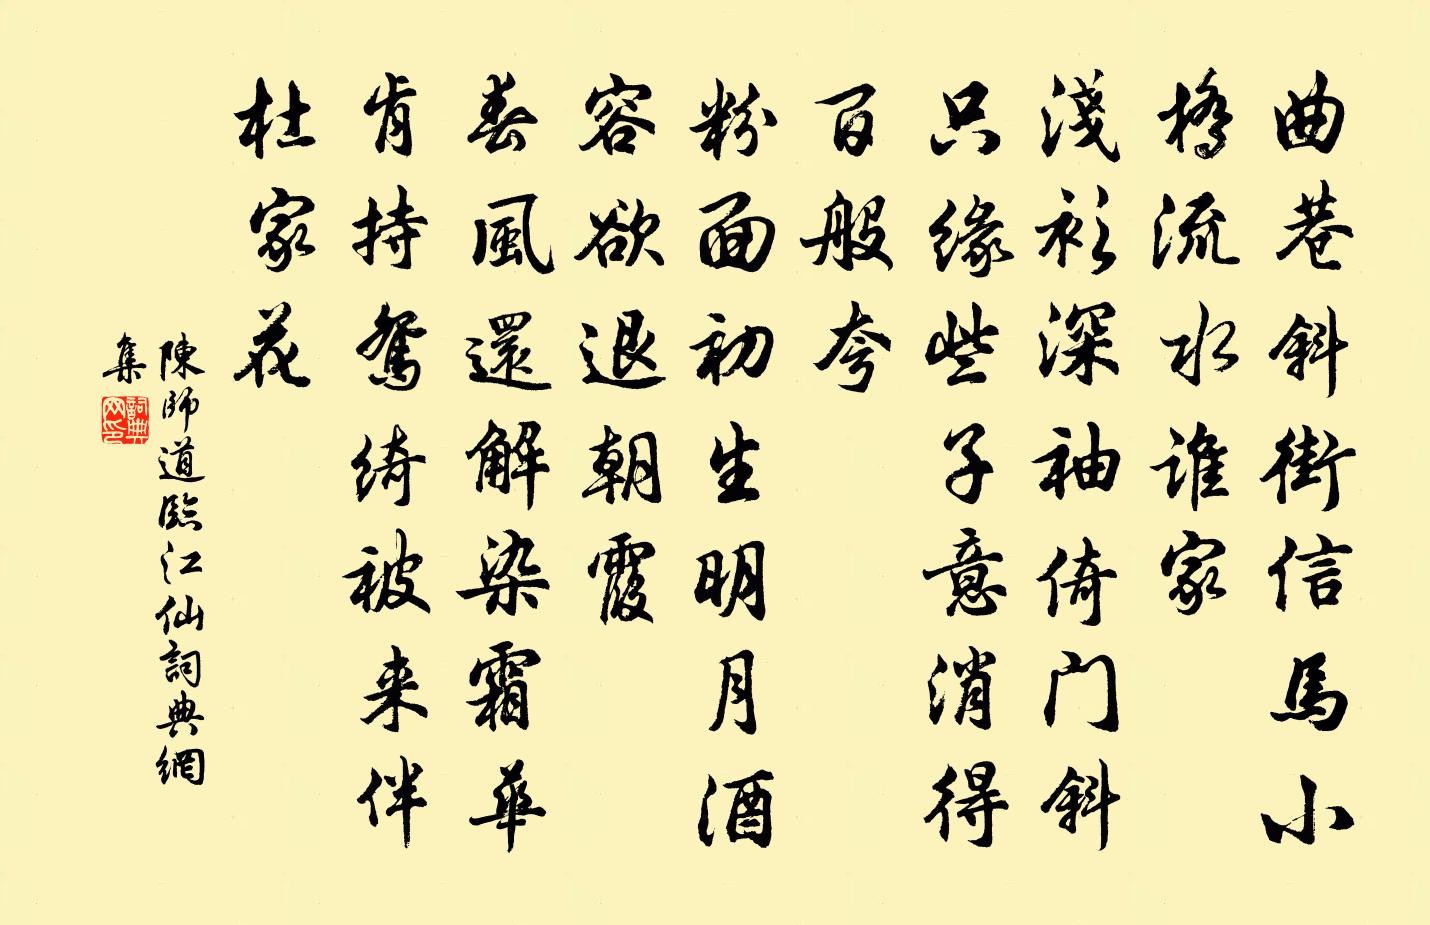 曲巷斜街信馬小
橋流水誰家
淺衫深袖倚门斜
只緣些子意消得
百般夸
粉面初生明月酒
容欲退朝霞
春風還解染霜華
肯持鴛綺被来伴
杜家花
陳師道臨江仙詞典網
集
詞典网印